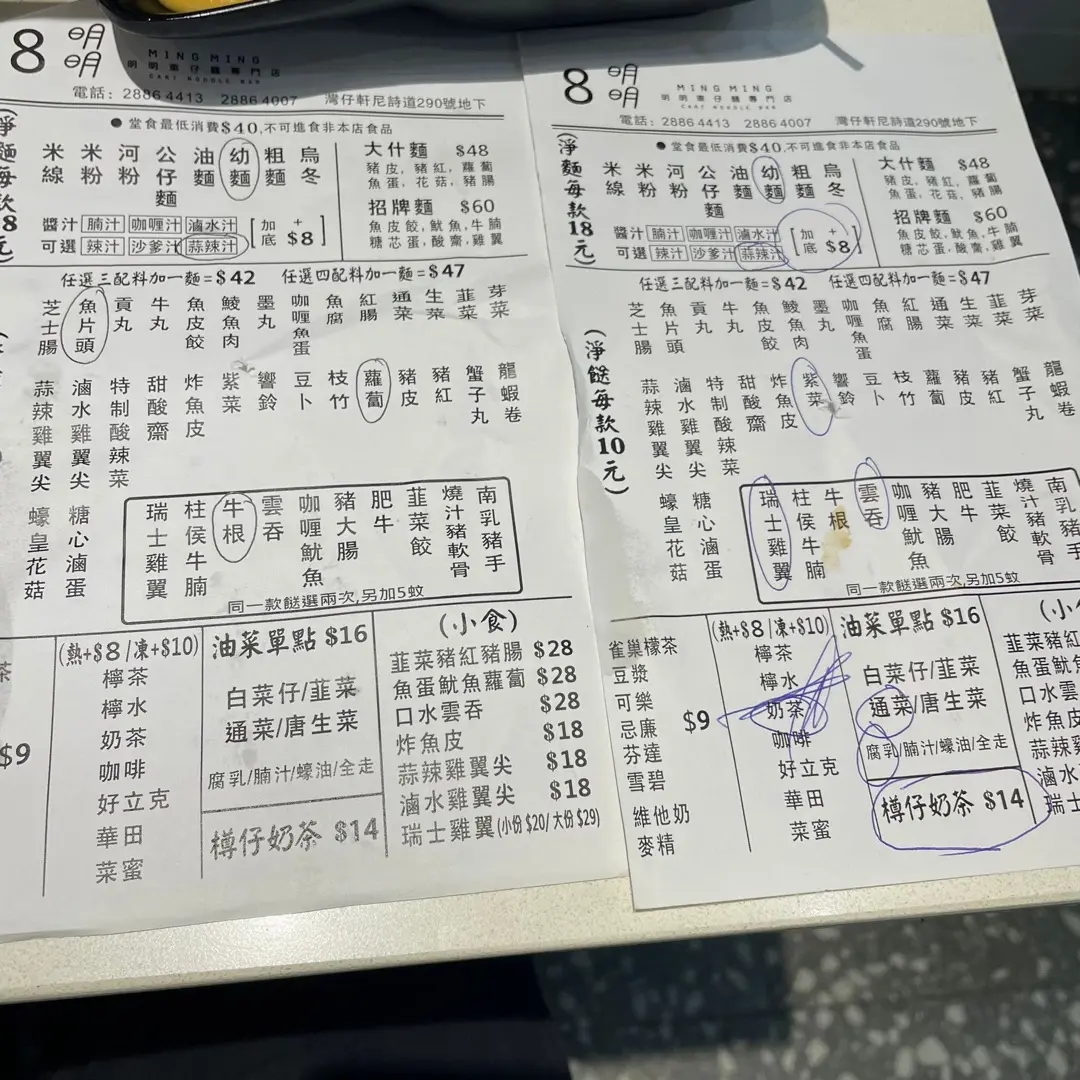 8 明明 MING MING
明明車仔麵專門店
CART NOODLE BAR
電話: 2886 4413 2886 4007 灣仔軒尼詩道290號地下
●堂食最低消費$40,不可進食非本店食品
淨麵每款8元
米線 米粉 河粉 公仔麵 油麵 幼麵 粗麵 烏冬
醬汁可選 腩汁 咖喱汁 滷水汁 辣汁 沙爹汁 蒜辣汁
[加底+$8]
大什麵 $48
豬皮, 豬紅, 蘿蔔
魚蛋, 花菇, 豬腸
招牌麵 $60
魚皮餃, 魷魚, 牛腩
糖芯蛋, 酸齋, 雞翼
任選三配料加一麵=$42 任選四配料加一麵=$47
芝士腸 魚片頭 貢丸 牛丸 魚皮餃 鯪魚肉 墨丸 咖喱魚蛋 魚腐 紅腸 通菜 生菜 韮菜 芽菜
蒜辣雞翼尖 滷水雞翼尖 特制酸辣菜 甜酸齋 炸魚皮 紫菜 響鈴 豆卜 枝竹 蘿蔔 豬皮 豬紅 蟹子丸 龍蝦卷
蠔皇花菇 糖心滷蛋
瑞士雞翼 柱侯牛腩 牛根 雲吞 咖喱魷魚 豬大腸 肥牛 韮菜餃 燒汁豬軟骨 南乳豬手
同一款餸選兩次,另加5蚊
茶
$9
(熱+$8/凍+$10)
檸茶
檸水
奶茶
咖啡
好立克
華田
菜蜜
油菜單點 $16
白菜仔/韮菜
通菜/唐生菜
腐乳/腩汁/蠔油/全走
樽仔奶茶 $14
(小食)
韮菜豬紅豬腸 $28
魚蛋魷魚蘿蔔 $28
口水雲吞 $28
炸魚皮 $18
蒜辣雞翼尖 $18
滷水雞翼尖 $18
瑞士雞翼(小份$20/大份$29)
8 明明 MING MING
明明車仔麵專門店
CART NOODLE BAR
電話: 2886 4413 2886 4007 灣仔軒尼詩道290號地下
●堂食最低消費$40,不可進食非本店食品
(淨麵每款18元)
米線 米粉 河粉 公仔麵 油麵 幼麵 粗麵 烏冬
醬汁可選 腩汁 咖喱汁 滷水汁 辣汁 沙爹汁 蒜辣汁
[加底+$8]
大什麵 $48
豬皮, 豬紅, 蘿蔔
魚蛋, 花菇, 豬腸
招牌麵 $60
魚皮餃, 魷魚, 牛腩
糖芯蛋, 酸齋, 雞翼
任選三配料加一麵=$42 任選四配料加一麵=$47
(淨餸每款10元)
芝士腸 魚片頭 貢丸 牛丸 魚皮餃 鯪魚肉 墨丸 咖喱魚蛋 魚腐 紅腸 通菜 生菜 韮菜 芽菜
蒜辣雞翼尖 滷水雞翼尖 特制酸辣菜 甜酸齋 炸魚皮 紫菜 響鈴 豆卜 枝竹 蘿蔔 豬皮 豬紅 蟹子丸 龍蝦卷
蠔皇花菇 糖心滷蛋
瑞士雞翼 柱侯牛腩 牛根 雲吞 咖喱魷魚 豬大腸 肥牛 韮菜餃 燒汁豬軟骨 南乳豬手
同一款餸選兩次,另加5蚊
雀巢檬茶
豆漿
可樂
忌廉
芬達
雪碧
維他奶
麥精
$9
(熱+$8/凍+$10)
檸茶
檸水
奶茶
咖啡
好立克
華田
菜蜜
油菜單點 $16
白菜仔/韮菜
通菜/唐生菜
腐乳/腩汁/蠔油/全走
樽仔奶茶 $14
(小
韮菜豬紅
魚蛋魷魚
口水雲
炸魚皮
蒜辣雞
滷水
瑞士